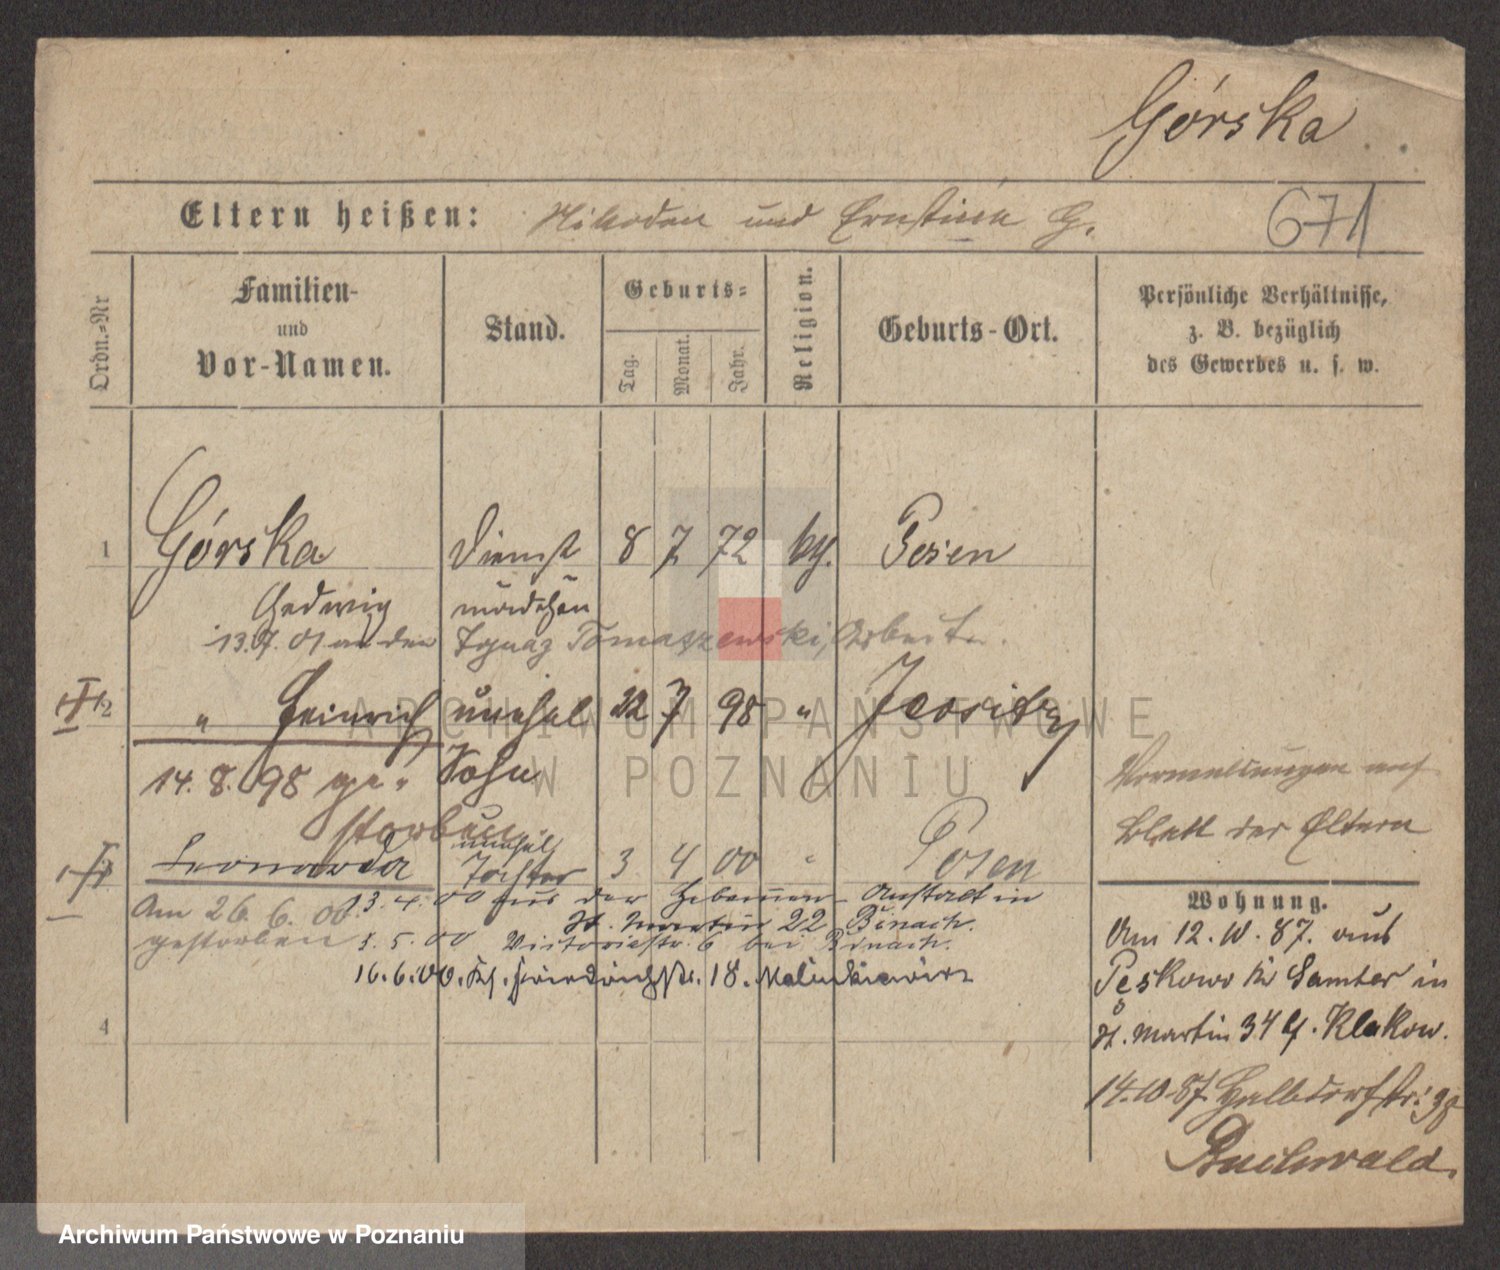 Górska
Eltern heißen: Nikodem und Ernstine G. 671
Ordn.=Nr
Familien-
und
Vor-Namen.
Stand.
Geburts=
Tag. Monat. Jahr.
Religion.
Geburts-Ort.
Persönliche Verhältnisse,
z. B. bezüglich
des Gewerbes u. s. w.
1 Górska Dienst 8 7 72 Posen
Hedwig mädchen
01 an den Ignaz Tomaszewski, Arbeiter.
2 " Heinrich unehel 22 7 98 "
14. 8. 98 ge= Sohn
storben
unehel
Leonarda Tochter 3 4 00 " Posen
13. 4. 00 aus der Hebammen-Anstalt in
Am 26. 6. 00 St. Martin 22 Binach.
gestorben 5. 00 Victoriastr. 6 bei Binach.
16. 6. 00. 18.
4
Vermerkungen auf
Blatt der Eltern
Wohnung.
Am 12. 10. 87. aus
Peskowo Kr Samter in
St. Martin 34 Klakow.
14.10.87 Halbdorfstr.
Buchwald.
ARCHIWUM PAŃSTWOWE
W POZNANIU
Archiwum Państwowe w Poznaniu